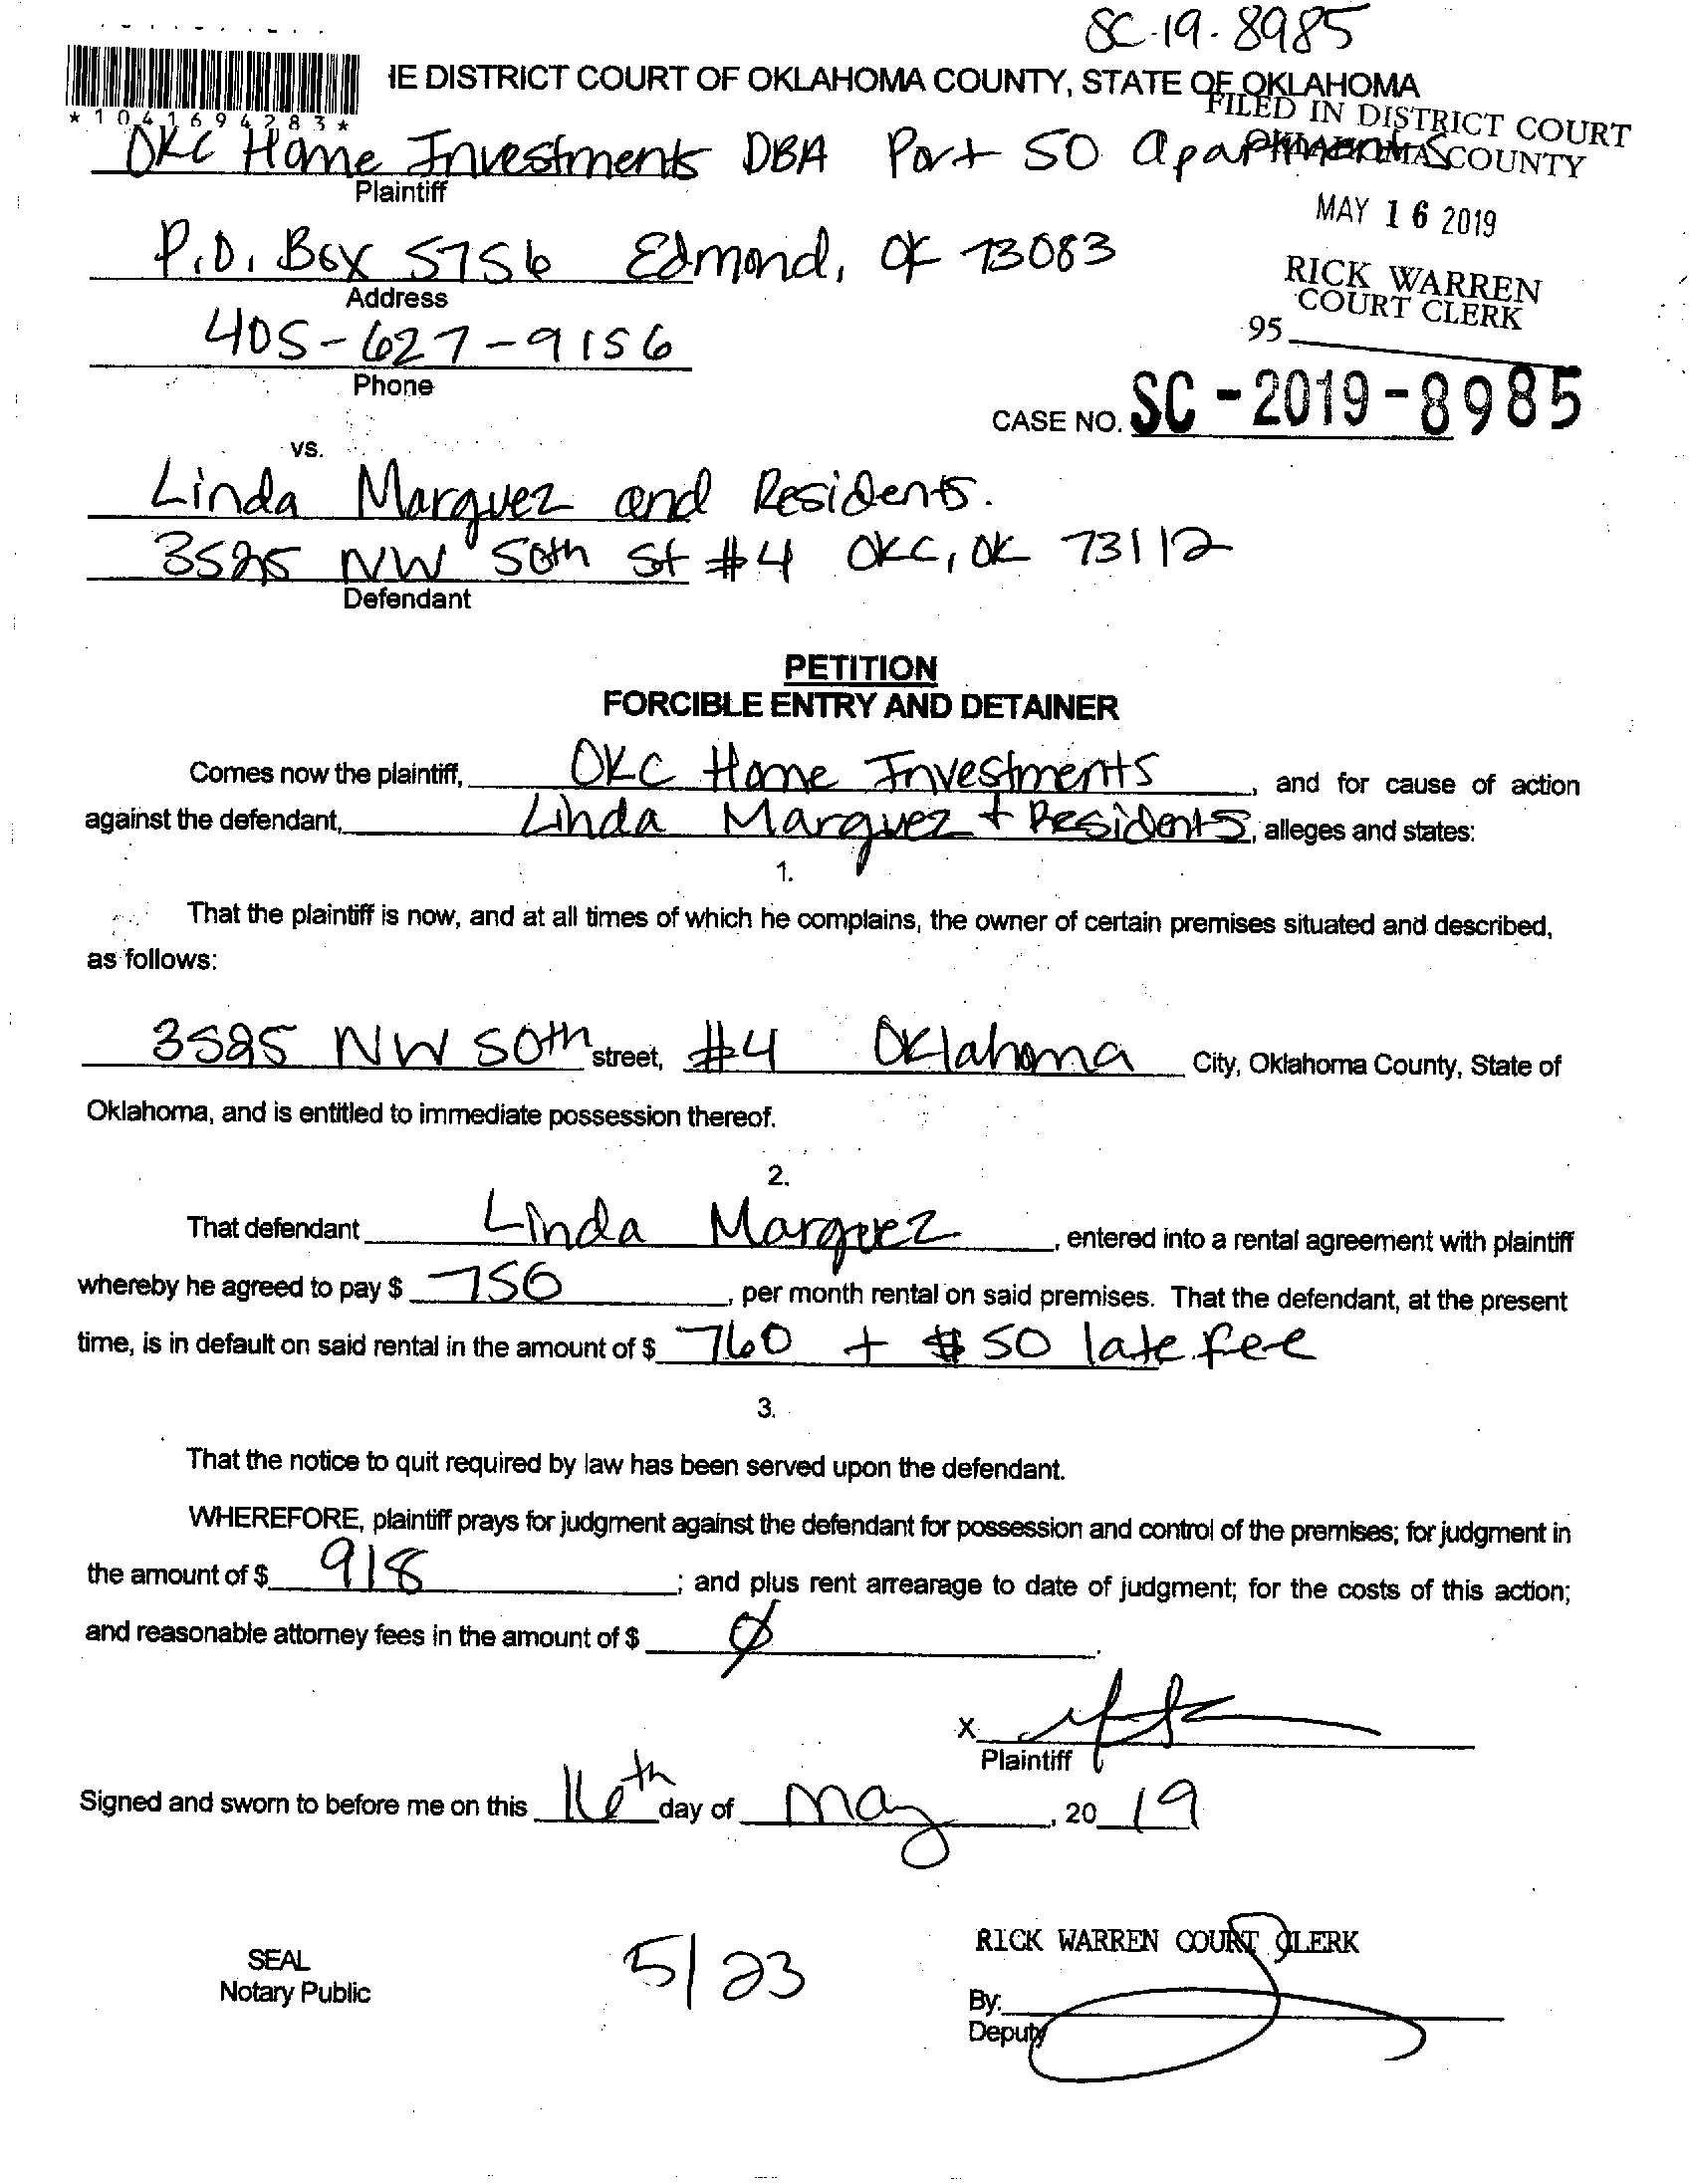 SC-19-8985
IE DISTRICT COURT OF OKLAHOMA COUNTY, STATE OF OKLAHOMA
*1041694283*
FILED IN DISTRICT COURT
OKLAHOMA COUNTY
OKC Home Investments DBA Port 50 apartments
Plaintiff
MAY 16 2019
P.O. Box 5756 Edmond, OK 73083
Address
RICK WARREN
COURT CLERK
405-627-9156
95
Phone
CASE NO. SC-2019-8985
vs.
Linda Marquez and Residents.
3525 NW 50th St #4 OKC, OK 73112
Defendant
PETITION
FORCIBLE ENTRY AND DETAINER
Comes now the plaintiff, OKC Home Investments, and for cause of action
against the defendant, Linda Marquez + Residents, alleges and states:
1.
That the plaintiff is now, and at all times of which he complains, the owner of certain premises situated and described,
as follows:
3525 NW 50th street, #4 Oklahoma City, Oklahoma County, State of
Oklahoma, and is entitled to immediate possession thereof.
2.
That defendant Linda Marquez, entered into a rental agreement with plaintiff
whereby he agreed to pay $ 750, per month rental on said premises. That the defendant, at the present
time, is in default on said rental in the amount of $ 760 + $50 late fee
3.
That the notice to quit required by law has been served upon the defendant.
WHEREFORE, plaintiff prays for judgment against the defendant for possession and control of the premises; for judgment in
the amount of $ 918; and plus rent arrearage to date of judgment; for the costs of this action;
and reasonable attorney fees in the amount of $ Ø.
X
Plaintiff
Signed and sworn to before me on this 16th day of May, 2019
RICK WARREN COURT CLERK
SEAL
Notary Public
5/23
By:
Deputy